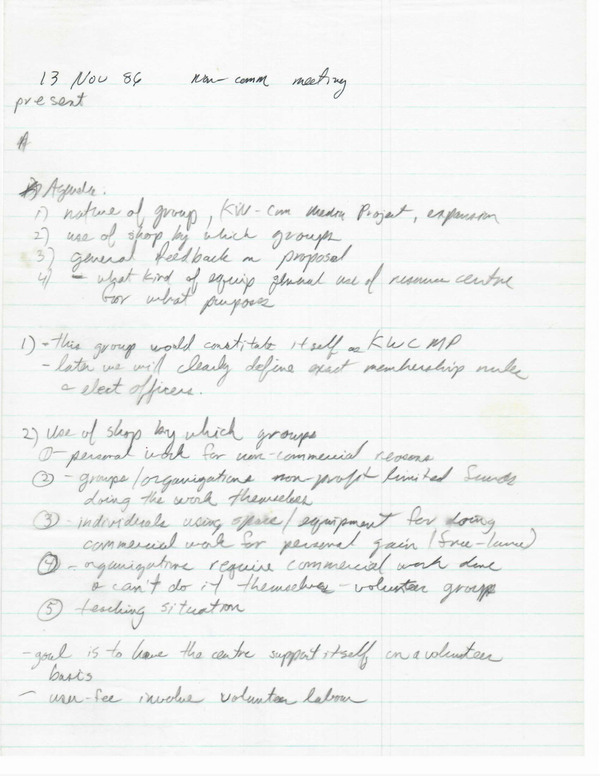 13 Nov 86 non-comm meeting
present
A
Agenda.
1) nature of group, KW-Com Media Project, expansion
2) use of shop by which groups
3) general feedback on proposal
4) - what kind of equip general use of resource centre
for what purposes
1) - this group would constitute itself as KWCMP
- later we will clearly define exact membership rules
& elect officers.
2) Use of shop by which groups
① - personal work for non-commercial reasons
② - groups/organizations non-profit limited funds
doing the work themselves
③ - individuals using space/equipment for doing
commercial work for personal gain (free-lance)
④ - organizations require commercial work done
& can't do it themselves - volunteer groups
⑤ - teaching situation
- goal is to have the centre support itself on a volunteer
basis
- user-fee involve volunteer labour